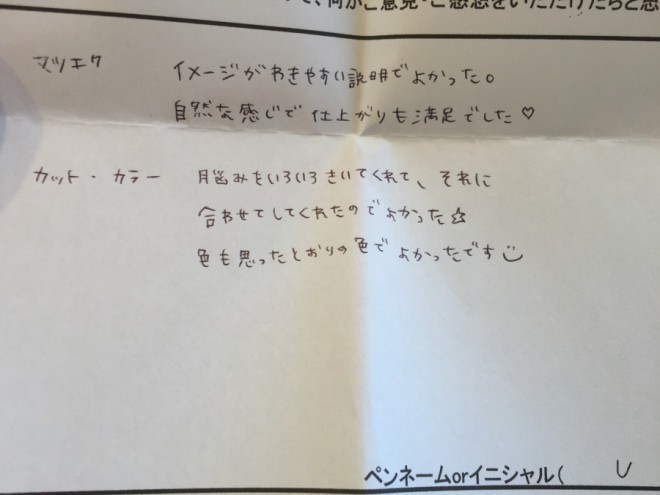 て、何かご意見・ご感想をいただけたらと思
マツエク イメージがわきやすい説明でよかった。
自然な感じで仕上がりも満足でした♡
カット・カラー 悩みをいろいろきいてくれて、それに
合わせてしてくれたのでよかった☆
色も思ったとおりの色でよかったです
ペンネームorイニシャル( U